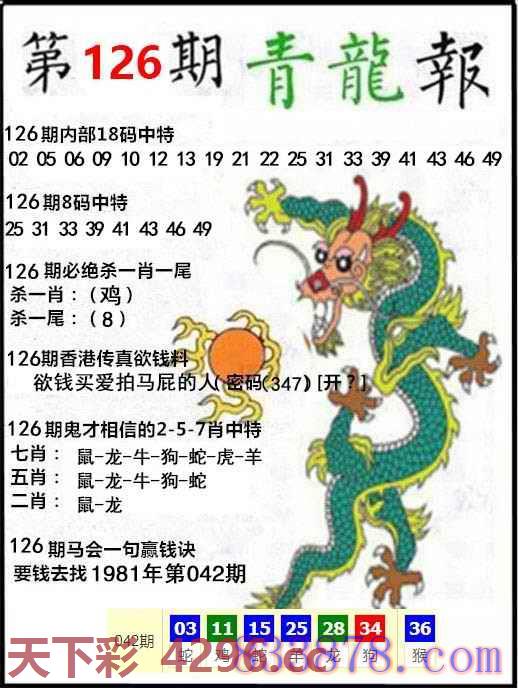 第126期青龍報
126期内部18码中特
02 05 06 09 10 12 13 19 21 22 25 31 33 39 41 43 46 49
126期8码中特
25 31 33 39 41 43 46 49
126期必绝杀一肖一尾
杀一肖：（鸡）
杀一尾：（8）
126期香港传真欲钱料
欲钱买爱拍马屁的人(密码(347)[开？]
126期鬼才相信的2-5-7肖中特
七肖： 鼠-龙-牛-狗-蛇-虎-羊
五肖： 鼠-龙-牛-狗-蛇
二肖： 鼠-龙
126期马会一句赢钱诀
要钱去找1981年第042期
042期 03 11 15 25 28 34 36
蛇 鸡 蛇 羊 龙 狗 猴
天下彩 4296.cc